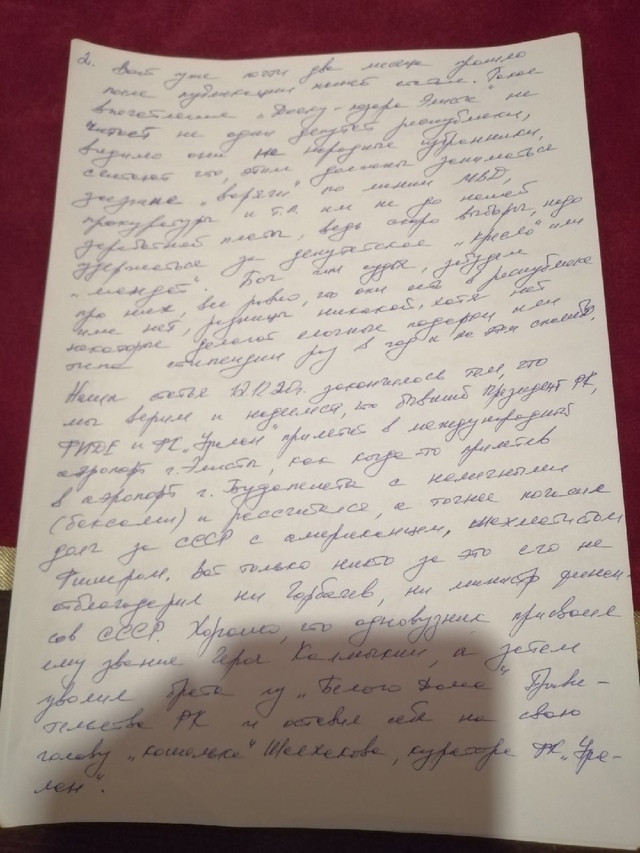 2. Вот уже почти два месяца прошло
после публикации нашей статьи. Такое
впечатление „ не
читает не один депутат республики,
видимо они не народные избранники,
считают что, этим должны заниматься
заезжие „варяги" по линии МВД,
прокуратуры и т.д. им не до нашей
заработной платы, ведь скоро выборы, надо
удержаться за депутатское „кресло" или
„мандат". Бог им судья, забудем
про них, все равно, что они есть в республике
или нет, разницы никакой, хотя нет
некоторые делают елочные подарки или
типа стипендии раз в год и на этом спасибо.
Наша статья 12.20г. закончилось тем, что
мы верим и надеемся, что бывший Президент РК,
ФИДЕ и ФК „Уралан" прилетит в международный
аэропорт г. Элисты, как когда-то прилетев
в аэропорт г. Будапешта с наличными
(баксами) и рассчитался, а точнее погасил
долг за СССР с американцем, шахматистом
Фишером. Вот только никто за это его не
отблагодарил ни Горбачев, ни министр финан-
сов СССР. Хорошо, что одновузник присвоил
ему звание Героя Калмыкии, а затем
уволил брата из „Белого Дома" Прави-
тельства РК и оставил себе на свою
голову „кошелька" куратора ФК „Ура-
лан".